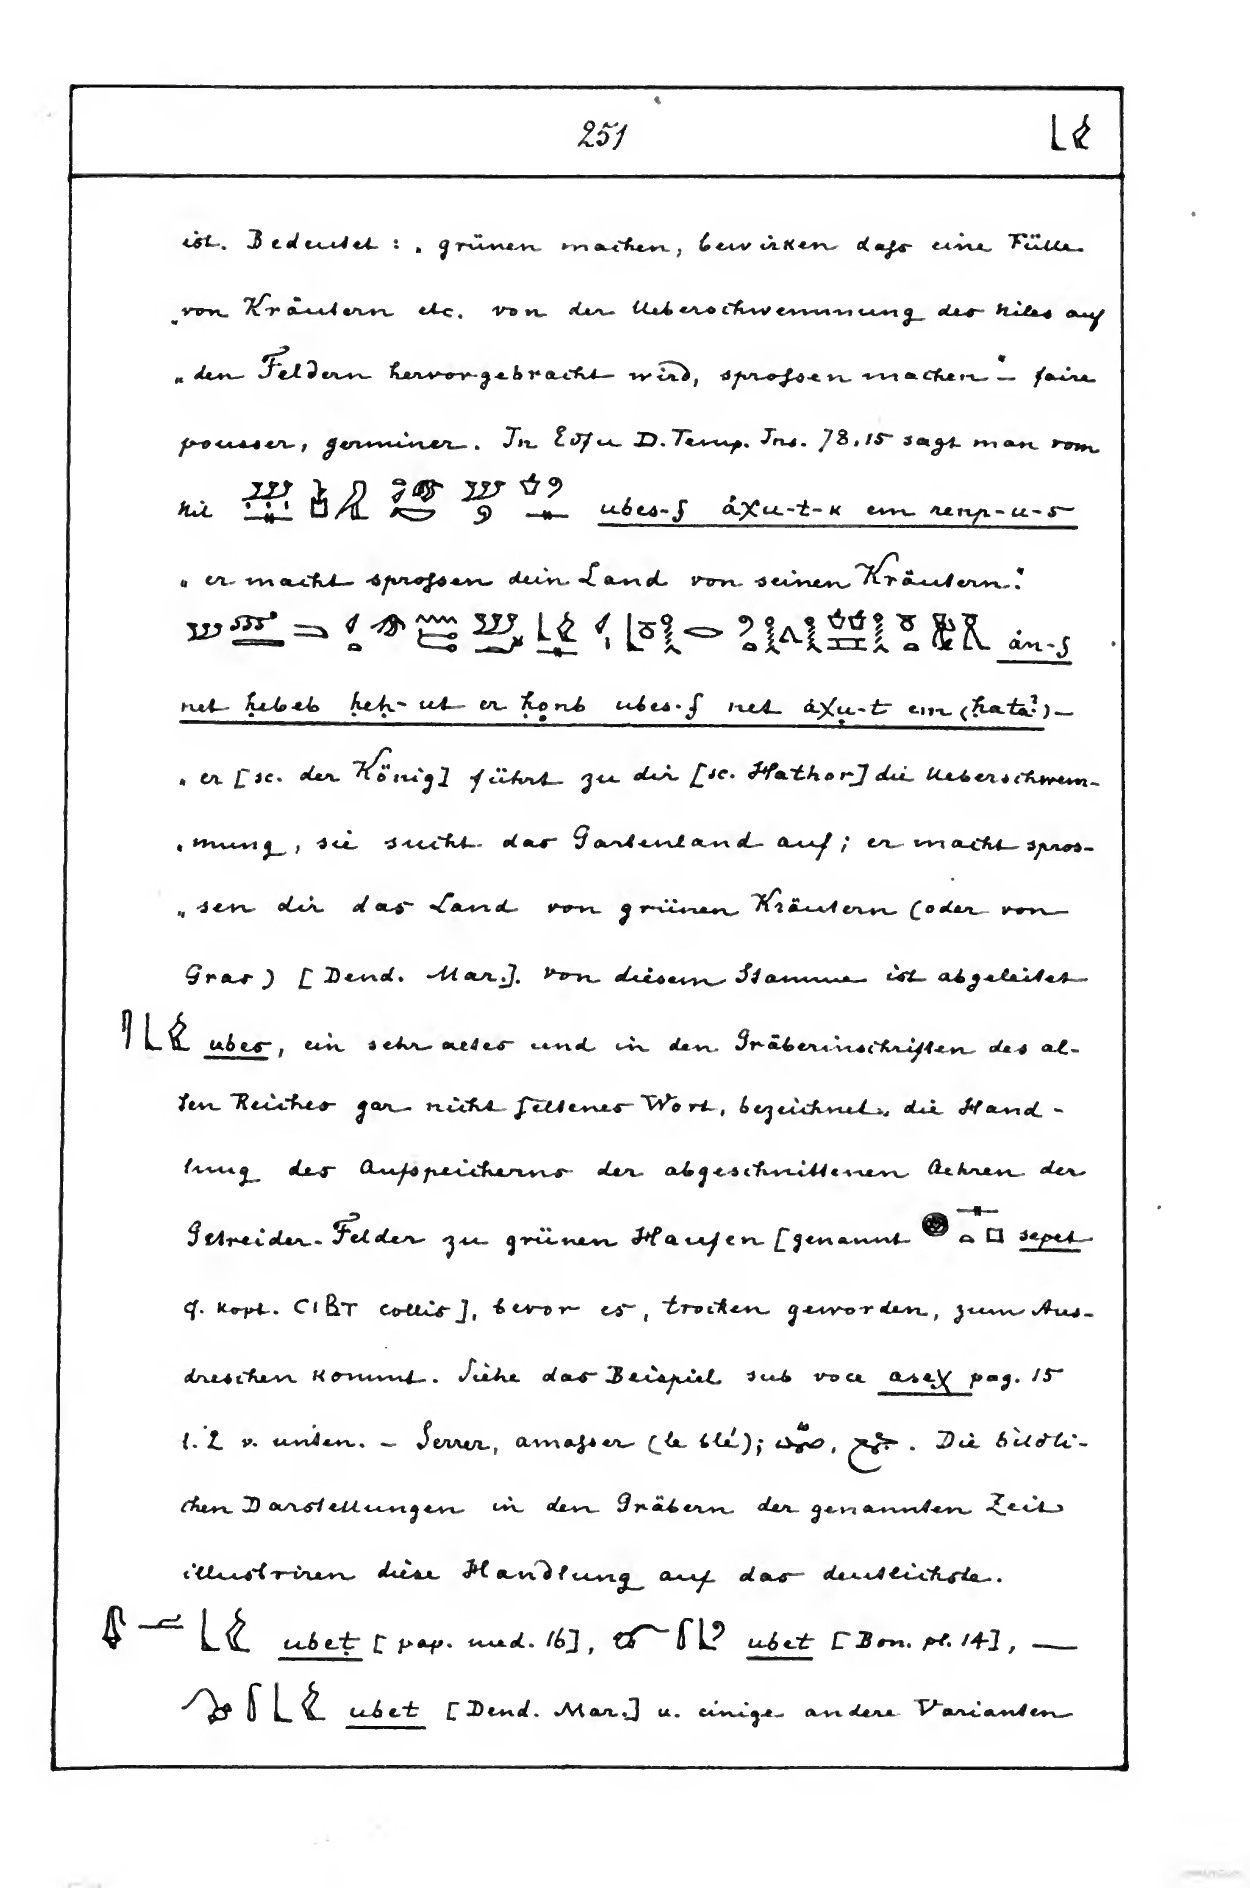 251
ist. Bedeutet: „grünen machen, bewirken daſs eine Fülle
„von Kräutern etc. von der Ueberschwemmung des Niles auf
„den Feldern hervorgebracht wird, sproſsen machen“ – faire
pousser, germiner. In Edfu D. Temp. Ins. 78,15 sagt man vom
Nil ubes-f áχu-t-k em renp-u-s
„er macht sproſsen dein Land von seinen Kräutern“:
án-f
net ḥebeb ḥeḥ-ut er ḥonb ubes-f net áχu-t em (ḥatá?) –
„er [sc. der König] führt zu dir [sc. Hathor] die Ueberschwem-
„mung, sie sucht das Gartenland auf; er macht spros-
„sen dir das Land von grünen Kräutern (oder von
Gras) [Dend. Mar.]. Von diesem Stamme ist abgeleitet
ubes, ein sehr altes und in den Gräberinschriften des al-
ten Reiches gar nicht seltenes Wort, bezeichnet die Hand-
lung des Aufspeicherns der abgeschnittenen Aehren der
Getreider-Felder zu grünen Haufen [genannt sepet
cf. kopt. ⲤⲒⲂⲦ collis], bevor es, trocken geworden, zum Aus-
dreschen kommt. Siehe das Beispiel sub voce aseχ pag. 15
l. 2 v. unten. – Serrer, amaſser (le blé); . Die bildli-
chen Darstellungen in den Gräbern der genannten Zeit
illustriren diese Handlung auf das deutlichste.
ubeṭ [pap. med. 16], ubet [Bon. pl. 14], —
ubet [Dend. Mar.] u. einige andere Varianten